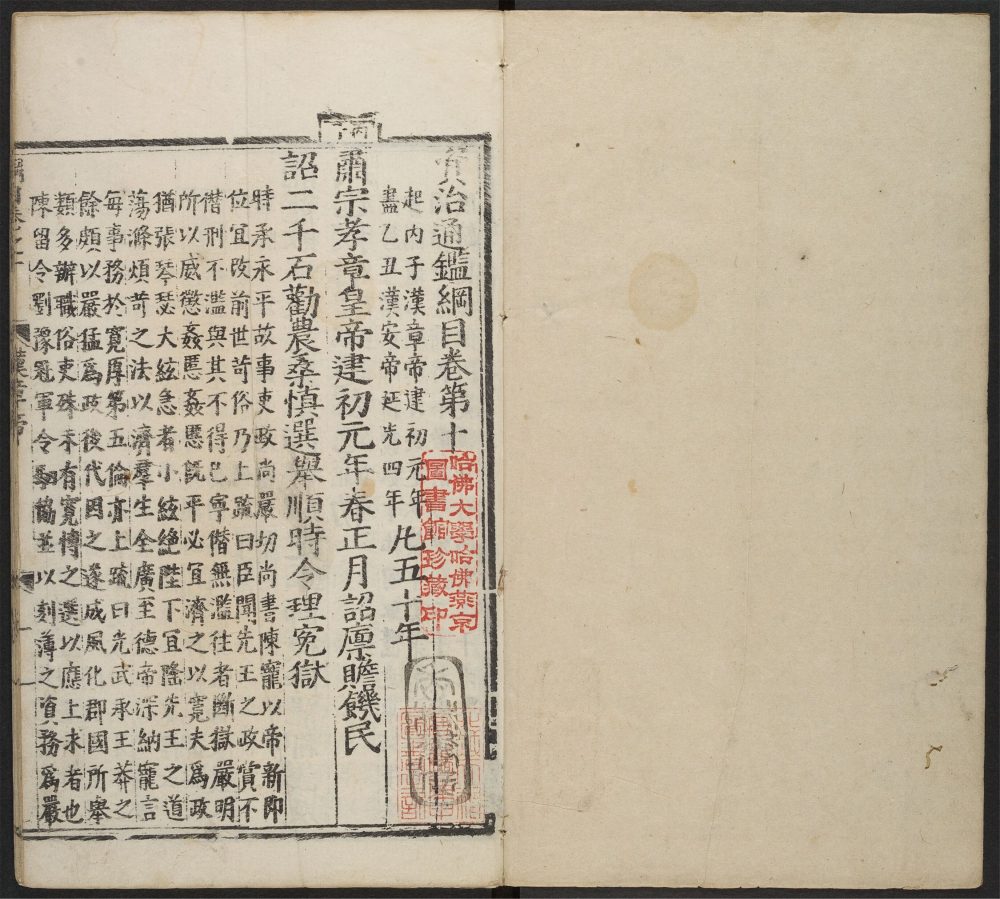 資治通鑑綱目卷第十
起丙子漢章帝建初元年
盡乙丑漢安帝延光四年
凡五十年
肅宗孝章皇帝建初元年春正月詔廩贍饑民
詔二千石勸農桑慎選舉順時令理冤獄
時承永平故事吏政尚嚴切尚書陳寵以帝新即
位宜改前世苛俗乃上疏曰臣聞先王之政賞不
僭刑不濫與其不得已寧僭無濫往者斷獄嚴明
所以威懲姦慝姦慝既平必宜濟之以寬夫為政
猶張琴瑟大絃急者小絃絶陛下宜隆先王之道
蕩滌煩苛之法以濟羣生全廣至德帝深納寵言
每事務於寬厚第五倫亦上疏曰光武承王莽之
餘頗以嚴猛為政後代因之遂成風化郡國所舉
類多辦職俗吏殊未有寬博之選以應上求者也
陳留令劉豫冠軍令駟協並以刻薄之資務為嚴
漢章帝
哈佛大學哈佛燕京
圖書館珍藏印